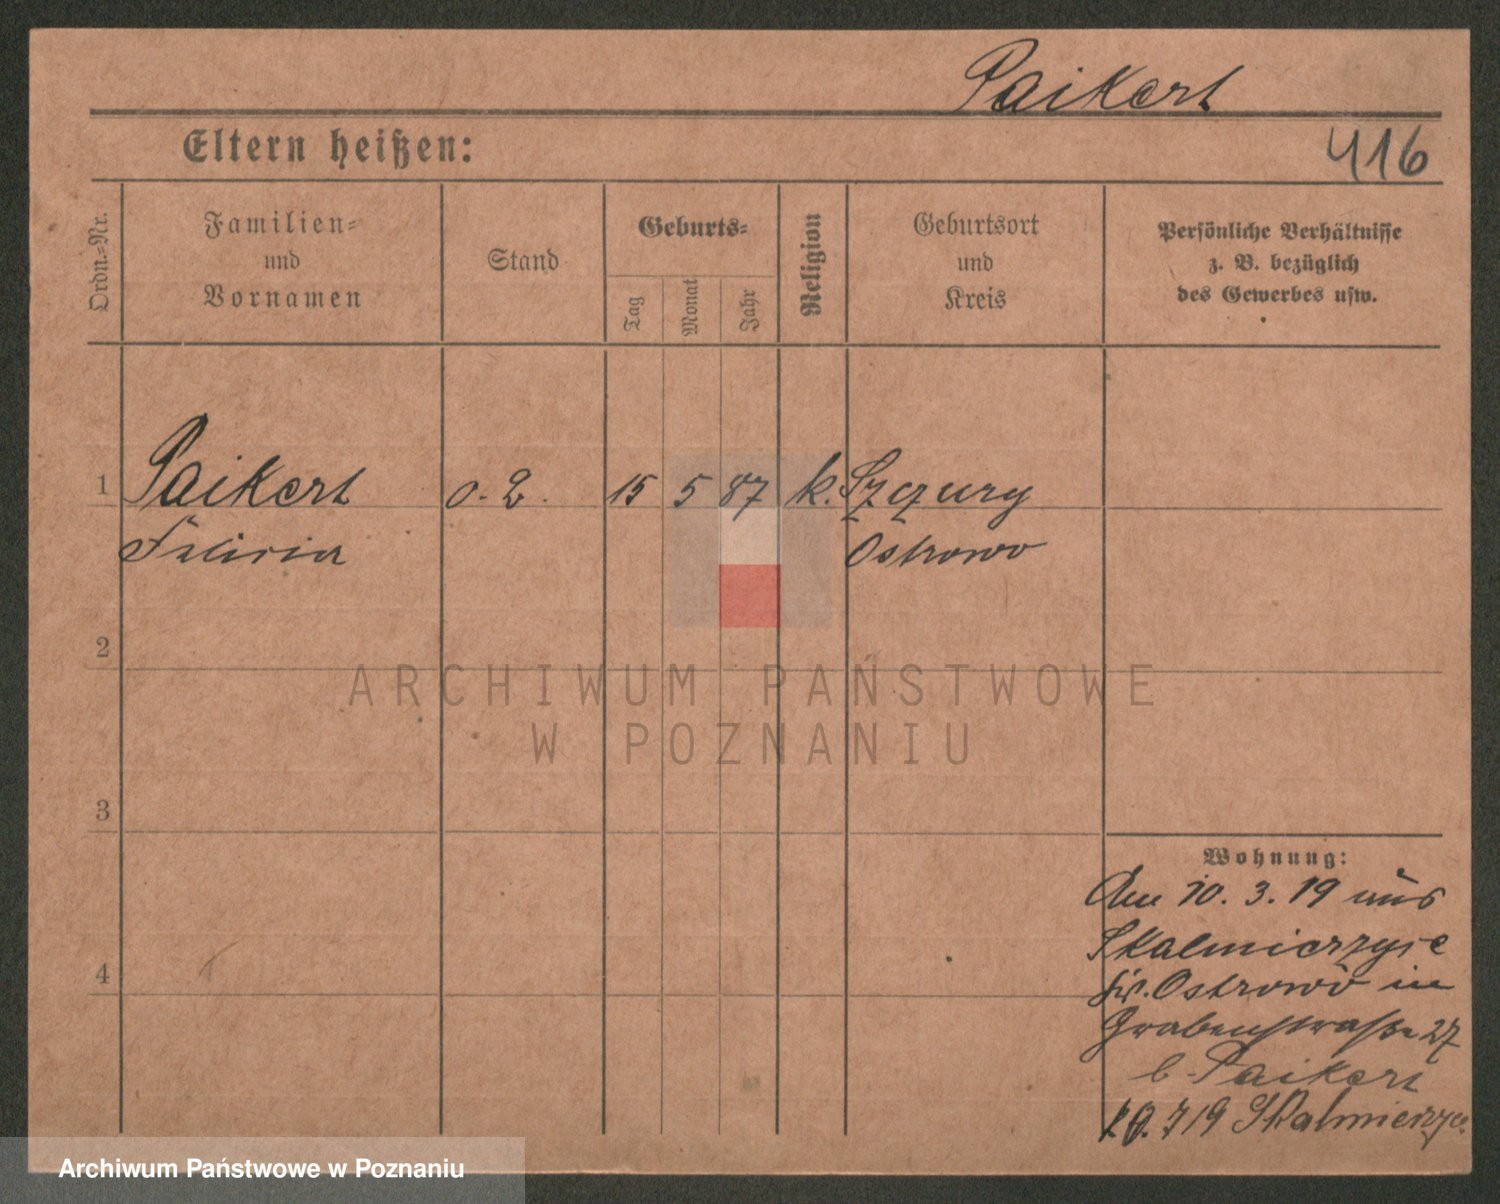 Paikert
Eltern heißen:
416
Ordn.-Nr.
Familien-
und
Vornamen
Stand
Geburts-
Tag
Monat
Jahr
Religion
Geburtsort
und
Kreis
Persönliche Verhältnisse
z. B. bezüglich
des Gewerbes usw.
1 Paikert o. 15 5 87 k. Szczury
Felicia Ostrowo
2
ARCHIWUM PAŃSTWOWE
W POZNANIU
3
Wohnung:
Am 10. 3. 19 aus
Skalmierzyce
Kr. Ostrowo in
Grabenstraße 27
b. Paikert
719 Skalmierzyce
4
Archiwum Państwowe w Poznaniu